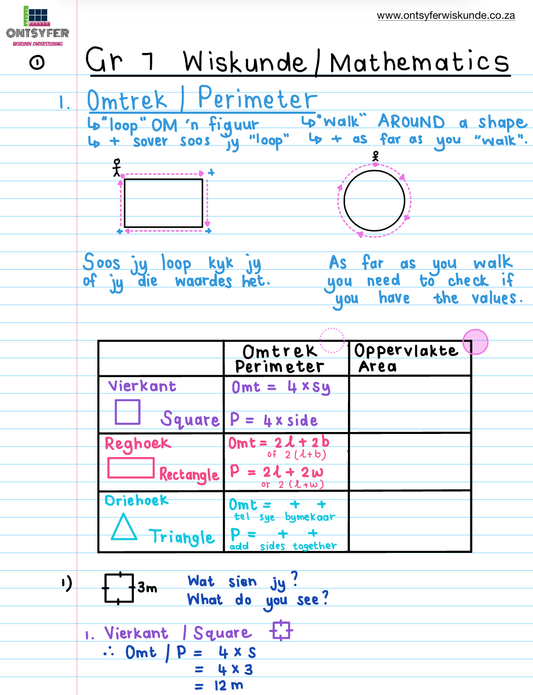 ONTSYFER
WISKUNDE ONDERSTEUNING
www.ontsyferwiskunde.co.za
① Gr 7 Wiskunde / Mathematics
1. Omtrek / Perimeter
↳ "loop" OM 'n figuur
↳ + sover soos jy "loop"
↳ "walk" AROUND a shape
↳ + as far as you "walk".
+
+ +
Soos jy loop kyk jy
of jy die waardes het.
As far as you walk
you need to check if
you have the values.
Omtrek
Perimeter
Oppervlakte
Area
Vierkant
Square
Omt = 4 × sy
P = 4 × side
Reghoek
Rectangle
Omt = 2l + 2b
of 2(l+b)
P = 2l + 2w
or 2(l+w)
Driehoek
Triangle
Omt = + +
tel sye bymekaar
P = + +
add sides together
1) 3m
Wat sien jy?
What do you see?
1. Vierkant / Square
∴ Omt / P = 4 × s
= 4 × 3
= 12 m